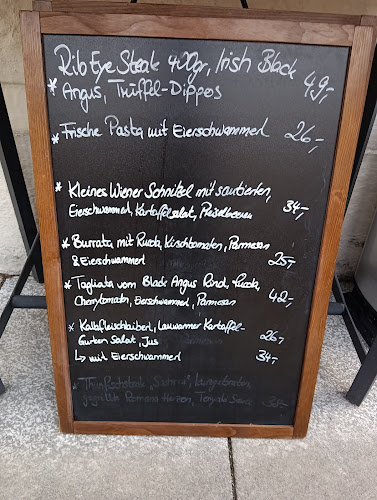 Rib Eye Steak 400gr, Irish Black
* Angus, Trüffel-Dippos 49,-
* Frische Pasta mit Eierschwammerl 26,-
* Kleines Wiener Schnitzel mit sautierten,
Eierschwammerl, Kartoffelsalat, Preiselbeeren 34,-
* Burrata, mit Rucola, Kirschtomaten, Parmesan
& Eierschwammerl 25,-
* Tagliata vom Black Angus Rind, Rucola,
Cherrytomaten, Eierschwammerl, Parmesan 42,-
* Kalbfleischlaiberl, Lauwarmer Kartoffel-
Gurken Salat, Jus 26,-
↳ mit Eierschwammerl 34,-
Romana Herzen, Teriyaki Sauce 38,-